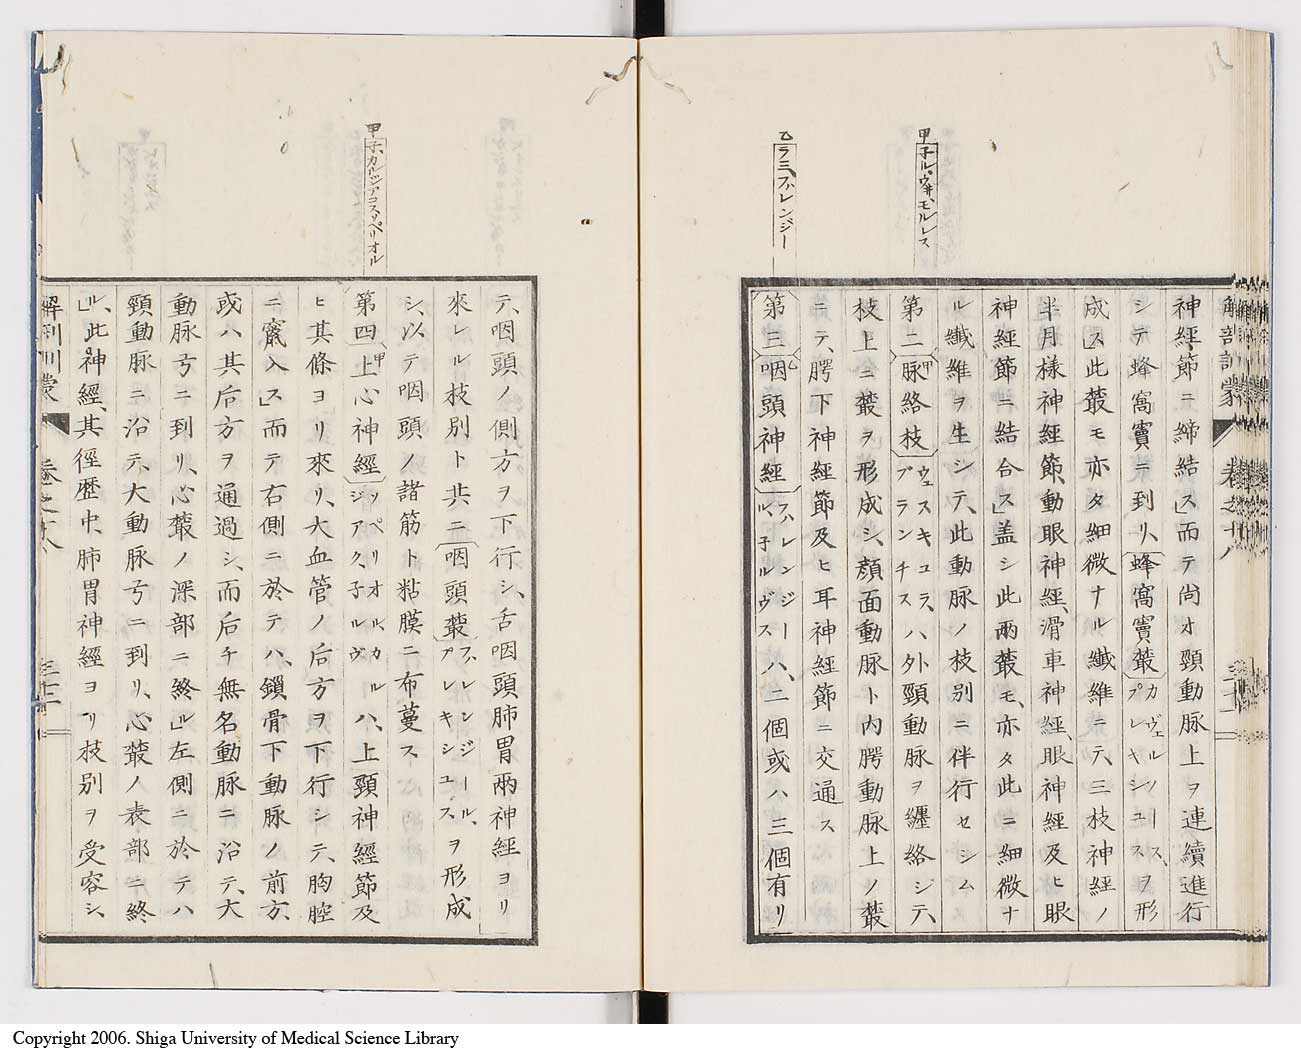 甲 子ル、ウ井、モルレス
乙 ラミ、フハレンジー
神經節ニ締結ス」而テ尚オ頸動脈上ヲ連續進行
シテ蜂窩竇ニ到リ、蜂窩竇叢カヴェルノース、プレキシユスヲ形
成ス」此叢モ亦タ細微ナル纎維ニテ、三枝神經ノ
半月樣神經節、動眼神經、滑車神經、眼神經及ヒ眼
神經節ニ結合ス」盖シ此兩叢モ、亦タ此ニ細微ナ
ル纎維ヲ生シテ、此動脈ノ枝別ニ伴行セシム
第二脈絡枝甲ヴェスキュラ、ブランチスハ外頸動脈ヲ纒絡シテ、
枝上ニ叢ヲ形成シ、顔面動脈ト内腭動脈上ノ叢
ニテ、腭下神經節及ヒ耳神經節ニ交通ス
第三咽頭神經乙フハレンジール、子ルヴスハ、二個或ハ三個有リ
解剖訓蒙 卷之十八
甲 子、カルジアコスソペリオル
テ、咽頭ノ側方ヲ下行シ、舌咽頭肺胃兩神經ヨリ
來レル枝別ト共ニ咽頭叢フハレンジール、プレキシユスヲ形成
シ、以テ咽頭ノ諸筋ト粘膜ニ布蔓ス
第四上心神經甲ソペリオル、カルジアク、子ルヴハ、上頸神經節及
ヒ其條ヨリ來リ、大血管ノ后方ヲ下行シテ、胸腔
ニ竄入ス」而テ右側ニ於テハ、鎖骨下動脈ノ前方、
或ハ其后方ヲ通過シ、而后チ無名動脈ニ沿テ、大
動脈弓ニ到リ、心叢ノ深部ニ終ル」左側ニ於テハ
頸動脈ニ沿テ、大動脈弓ニ到リ、心叢ノ表部ニ終
ル」、此神經、其徑歷中、肺胃神經ヨリ枝別ヲ受容シ、
解剖訓蒙 卷之十八
Copyright 2006. Shiga University of Medical Science Library